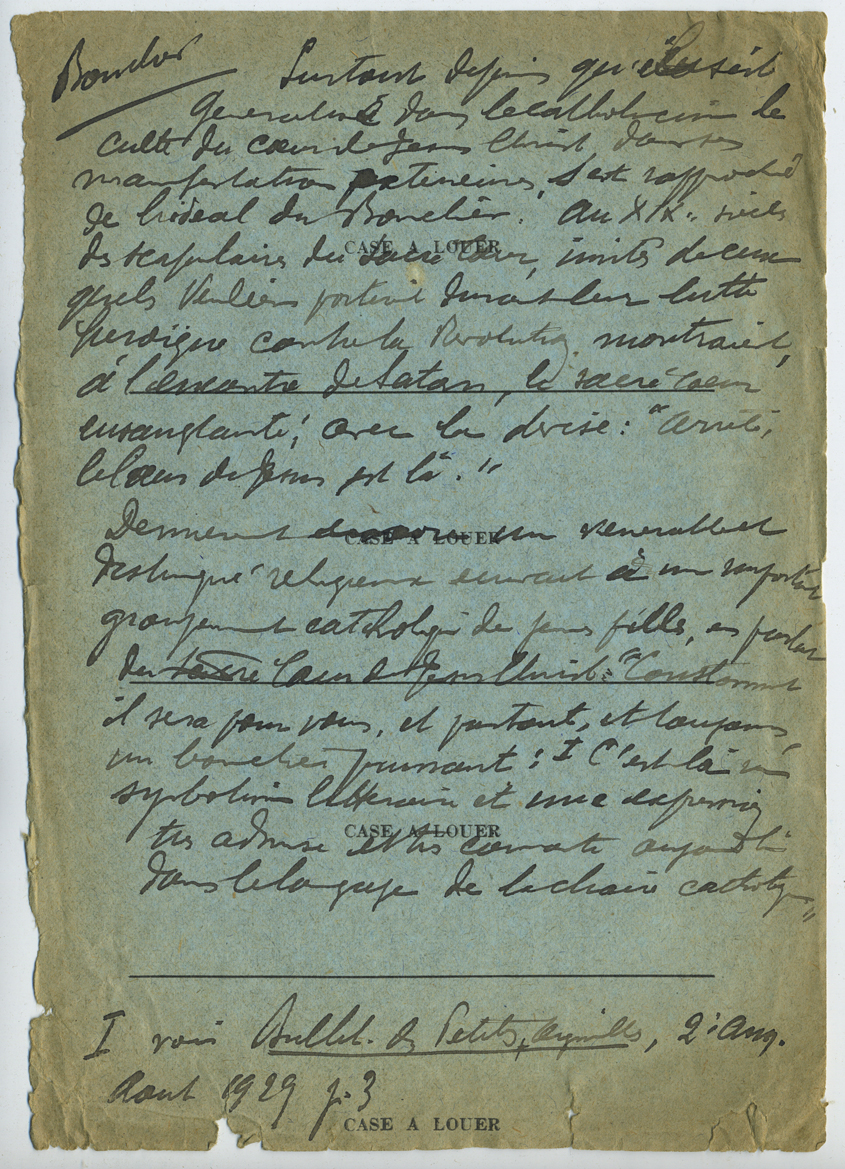 Bouclier
Surtout depuis qu'il s'est
généralisé dans le catholicisme le
culte du cœur de Jésus Christ dans ses
manifestations extérieures, s'est rapproché
de l'idéal du Bouclier. Au XIXe siècle
des scapulaires du Sacré Cœur, imités de ceux
CASE A LOUER
qu'els Vendéens portaient durant leur lutte
héroïque contre la Révolution, montraient,
à l'encontre de Satan, le sacré cœur
ensanglanté, avec la devise: "Arrête,
le Cœur de Jésus est là."
Dernièrement un vénérable et
CASE A LOUER
distingué religieux écrivait à un important
groupement catholique de jeunes filles, en parlant
du Sacré Cœur de Jésus Christ: "Constamment
il sera pour vous, et partout, et toujours,
un bouclier puissant: I C'est là un
symbolisme littéraire et une expression
CASE A LOUER
très admise et très courante aujourd'hui
dans le langage de la chaire catholique"
I voir Bullet. des Petits, 2e Ann.
Aout 1929 p. 3
CASE A LOUER